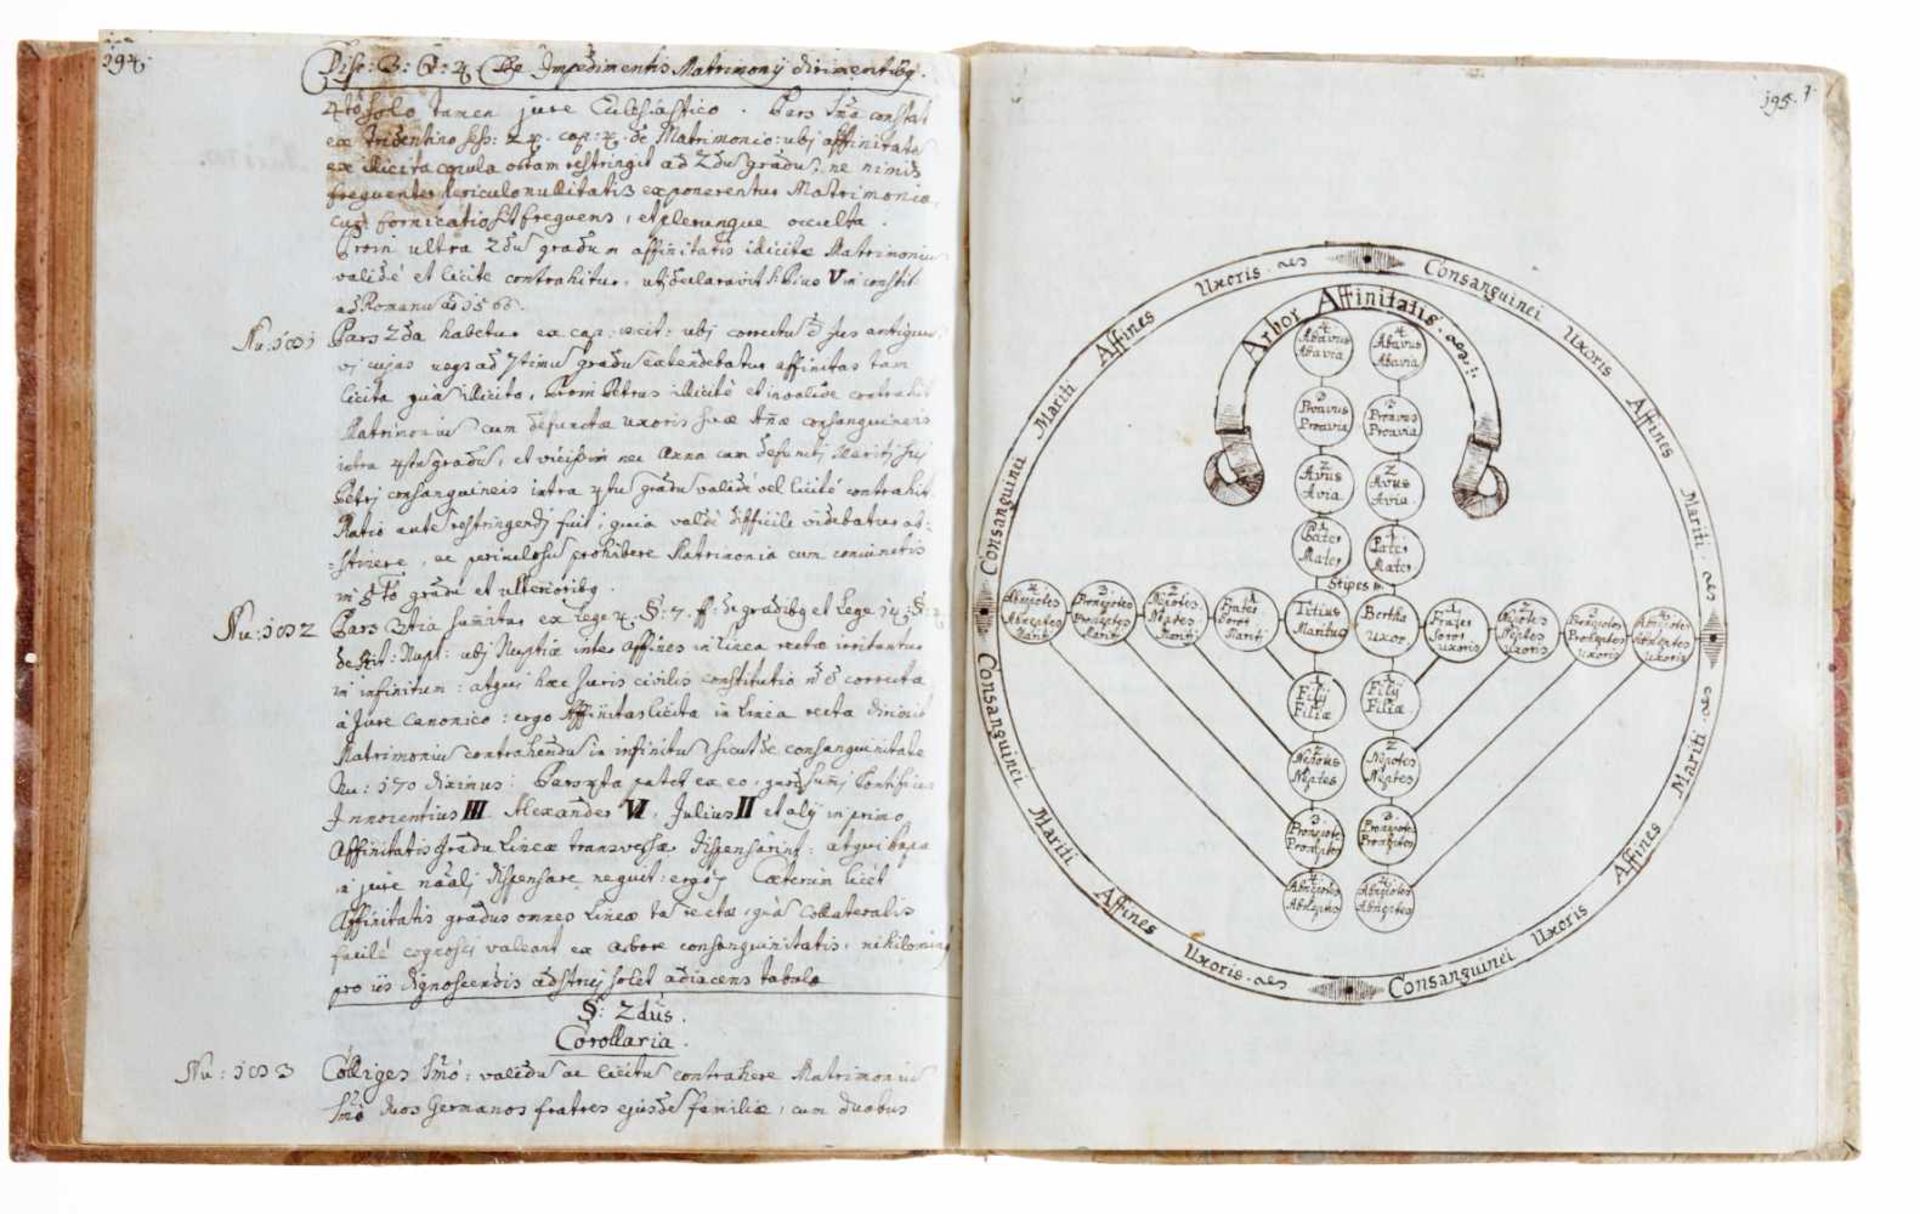 194.
Disp: 3: Q: 4. De Impedimentis Matrimonij dirimentibq.
4tò solo tamen jure Ecclesiastico. Pars 1ma constat
ex Tridentino sess: 24. cap: 4. de Matrimonio: ubj affinitatē
ex illicita copula ortam restringit ad 2dū gradū, ne nimis
frequenter periculo nullitatis exponerentur Matrimonia,
cum fornicatio sit frequens, et plerunque occulta.
Proin ultra 2dū gradum affinitatis illicitæ Matrimoniū
validè et licite contrahitur, uti declaravit S: Pius V in constit
ad Romanū 1566.
Nu: 191 Pars 2da habetur ex cap: cit: ubj correctū ē jus antiquū
vi cujus usqs ad 7timū gradū extendebatur affinitas tam
licita quā illicita, Proin Petrus illicitè et invalide contrahit
Matrimoniū cum defunctæ uxoris suæ Annæ consanguineis
intra 4tū gradū, et vicissim nec Anna cum defuncti Mariti sui
Petrj consanguineis intra 4tū gradū validè vel licitè contrahit
Ratio autē restringendj fuit, quia valdè difficile videbatur ab-
=stinere, ac periculosū prohibere Matrimonia cum coniunctis
in 5tò gradu et ulterioribq.
Nu: 192 Pars 3tia sumitur ex Lege 4. §: 7. ff: de gradibq et Lege 14. §:
de Rit: Nupt: ubj Nuptiæ inter affines in linea rectæ irritantur
in infinitum: atqui hæc Juris civilis constitutio nō ē correcta
à Jure Canonico: ergo Affinitas licita in linea recta dirimit
Matrimoniū contrahendū in infinitū sicut de consanguinitate
Nu: 170 diximus: Pars 4ta patet ex eo, quod sumj Pontifices
Innocentius III. Alexander VI. Julius II et alij in primo
Affinitatis gradu lineæ transversæ dispensarint: atqui Papa
à jure nāalj dispensare nequit: ergo Cæterum licèt
Affinitatis gradus omnes Lineæ tā rectæ, quā Collateralis
facilè cognosci valeant ex arbore consanguinitatis, nihilominq
pro iis dignoscendis adstrui solet adiacens tabula
§: 2dus.
Corollaria.
Nu: 193 Colliges 1mò: validū ac licitū contrahere Matrimoniū
1mò duos Germanos fratres ejusdē familiæ, cum duobus
195.
Consanguinei Uxoris Affines Mariti.
Mariti Affines Uxoris Consanguinei
Consanguinei Mariti Affines Uxoris.
Consanguinei Mariti Affines Uxoris.
Arbor Affinitatis.
4 Abavus Abavia
4 Abavus Abavia
3 Proavus Proavia
3 Proavus Proavia
2 Avus Avia
2 Avus Avia
1 Pater Mater
1 Pater Mater
Stipes
4 Abnepotes Abneptes Mariti
3 Pronepotes Proneptes Mariti
2 Nepotes Neptes Mariti
1 Frater Soror Mariti
Titius Maritus
Bertha Uxor
1 Frater Soror Uxoris
2 Nepotes Neptes Uxoris
3 Pronepotes Proneptes Uxoris
4 Abnepotes Abneptes Uxoris
1 Filij Filiæ
1 Filij Filiæ
2 Nepotes Neptes
2 Nepotes Neptes
3 Pronepotes Proneptes
3 Pronepotes Proneptes
4 Abnepotes Abneptes
4 Abnepotes Abneptes